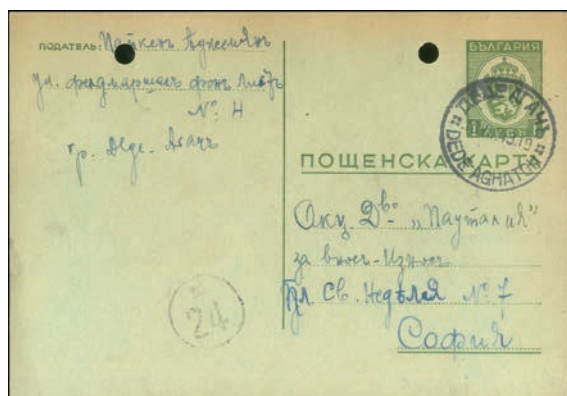 ПОДАТЕЛЬ:
ул. фелдмаршалъ фонъ
№ 4
гр. Деде-Агачъ
БЪЛГАРИЯ
ДЕДЕАГАЧЪ
DEDEAGHATCH
ПОЩЕНСКА КАРТА
Акц. Д-во "Пауталия"
за вносъ-Износъ
Пл. Св. Недѣля № 7
София
24